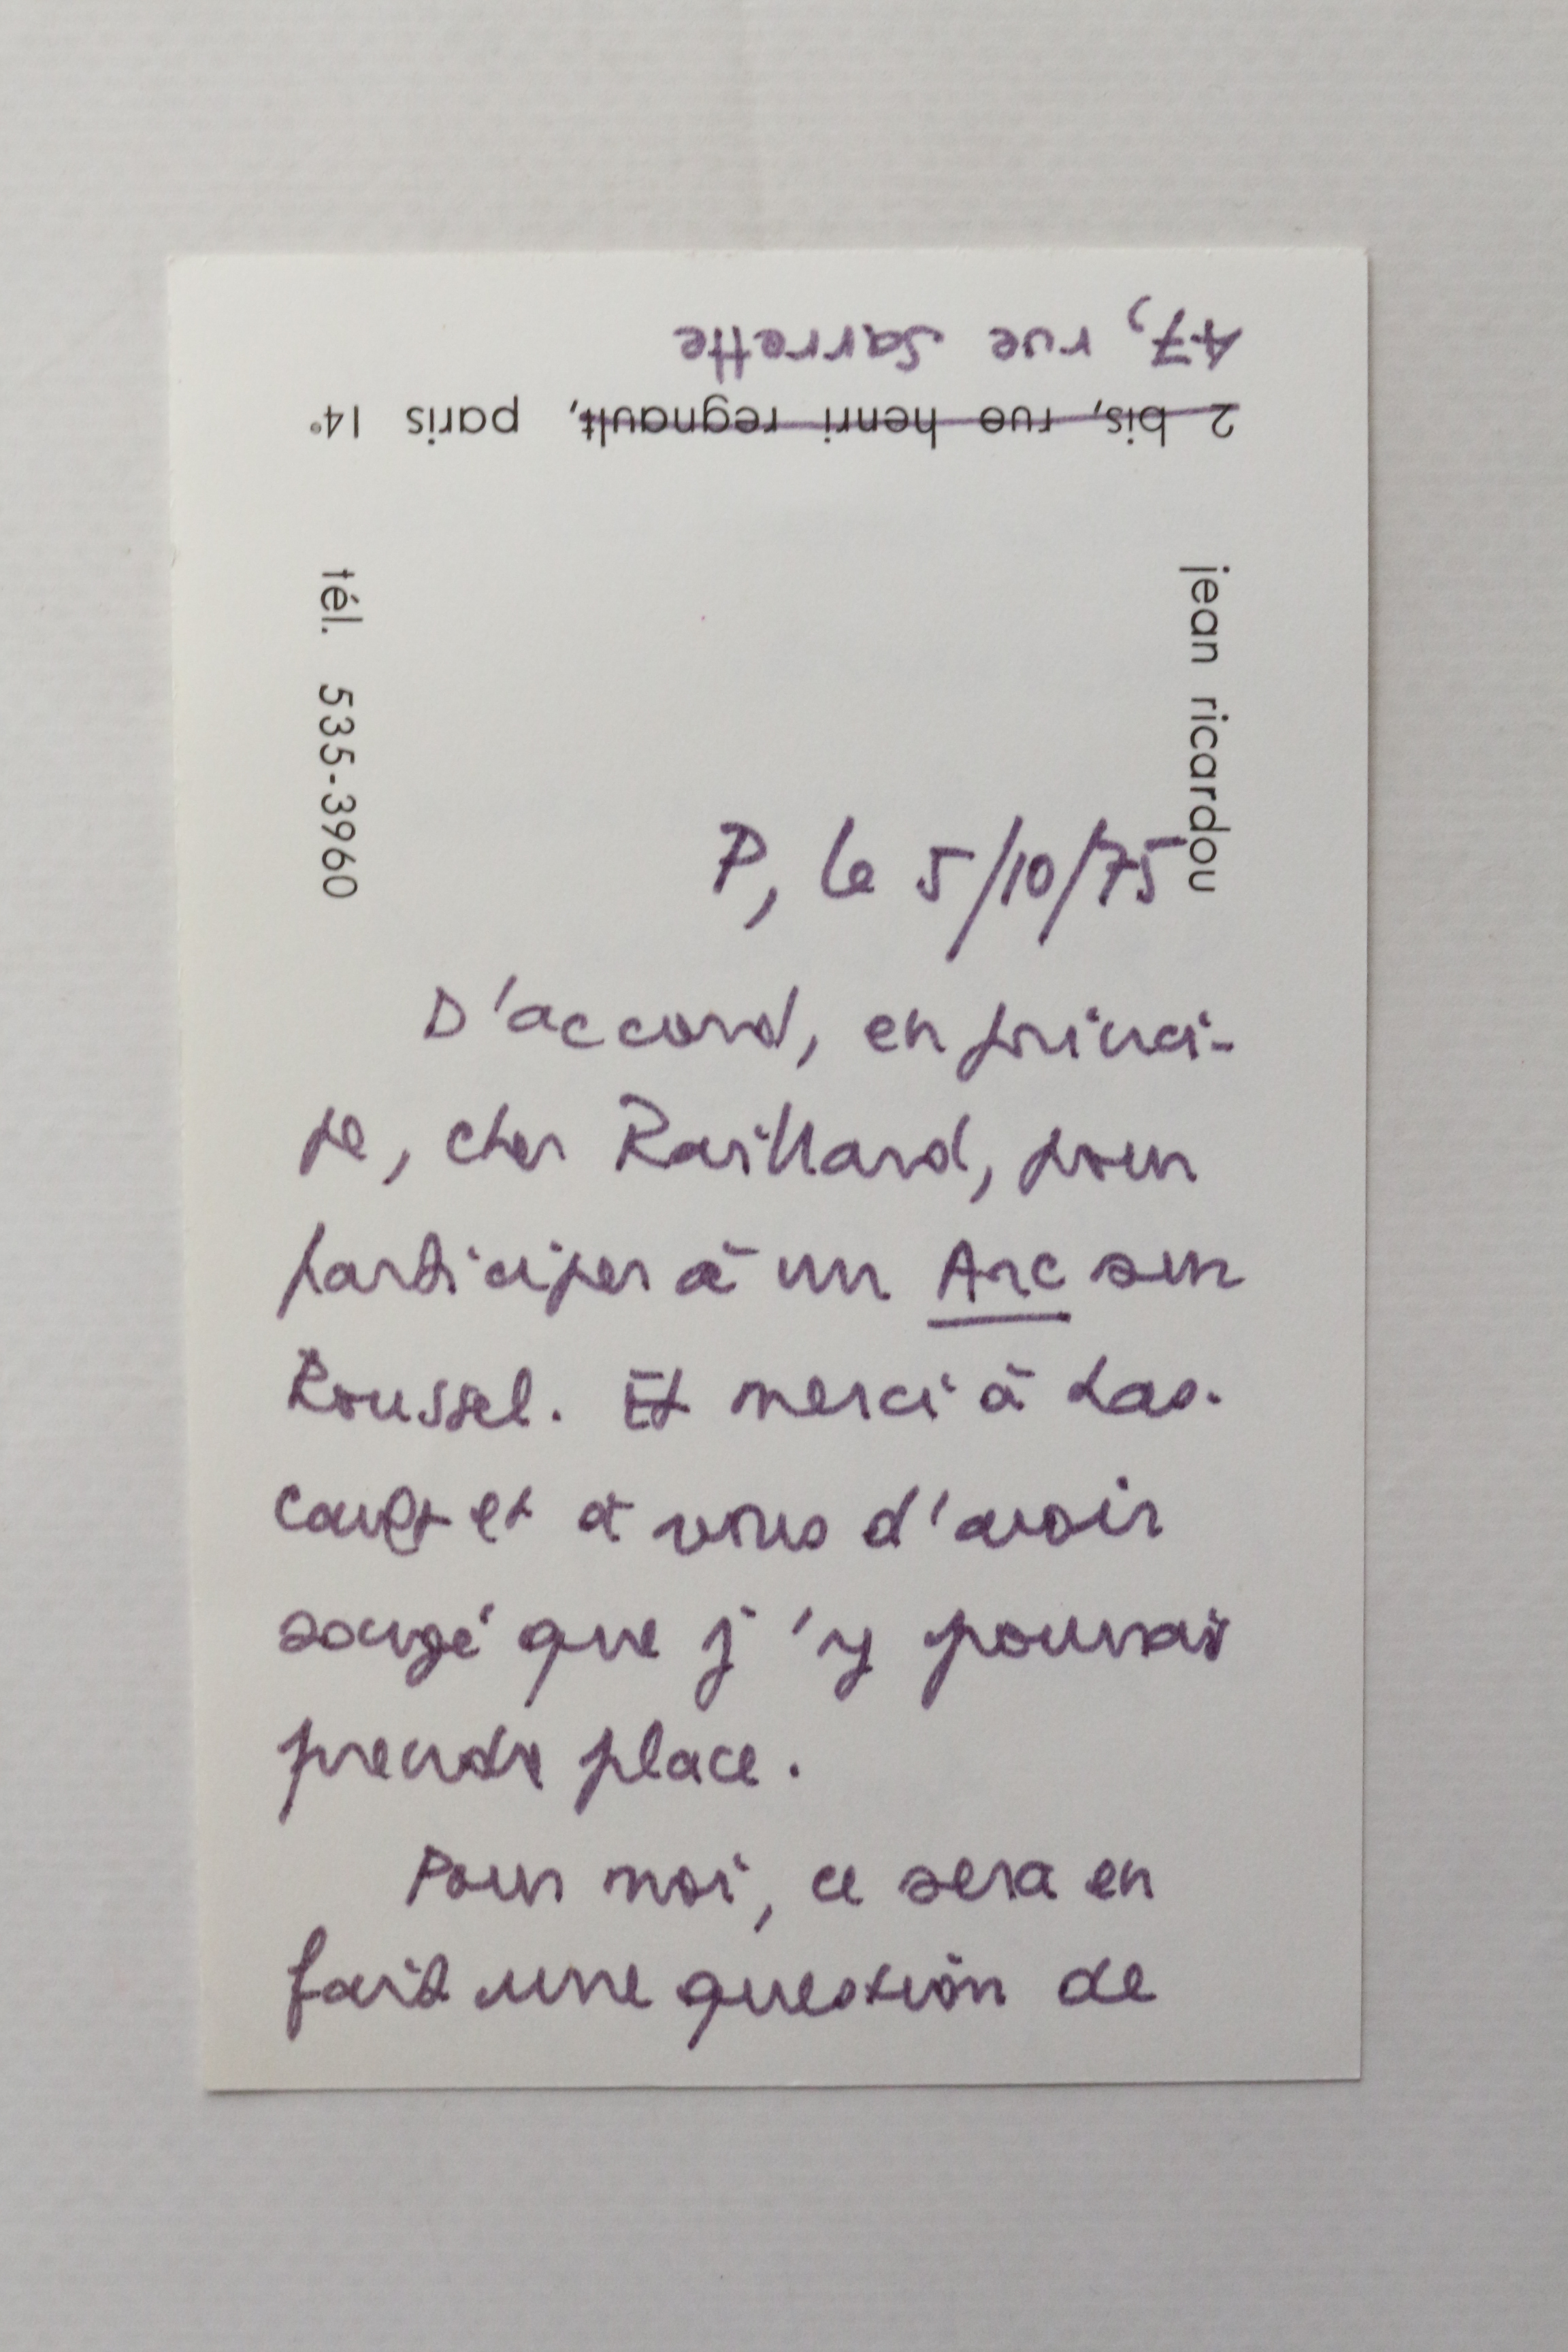 47, rue Sarrette
2 bis, rue henri regnault, paris 14e
jean ricardou
tél. 535-3960
P, le 5/10/75
D'accord, en princi-
pe, cher Raillard, pour
participer à un Arc sur
Roussel. Et merci à Las-
cault et à vous d'avoir
songé que j'y pouvais
prendre place.
Pour moi, ce sera en
fait une question de